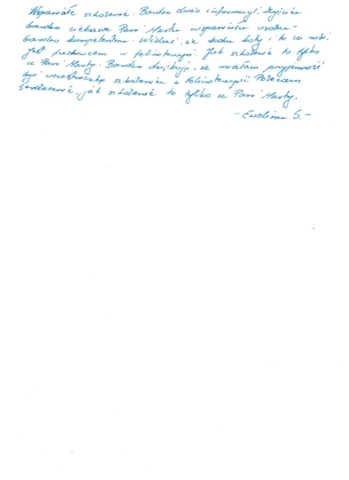 Wspaniałe szkolenie. Bardzo dużo informacji. Zajęcia
bardzo ciekawe Pani Marta wspaniała osoba
bardzo kompetentna. Widać, że kocha koty i to co robi.
Jest fachowcem w felinoterapii. Jak szkolenie to tylko
u Pani Marty. Bardzo dziękuję, że miałam przyjemność
być uczestniczką szkolenia z felinoterapii. Polecam
serdecznie, jak szkolenie to tylko u Pani Marty.
- Ewelina S. -